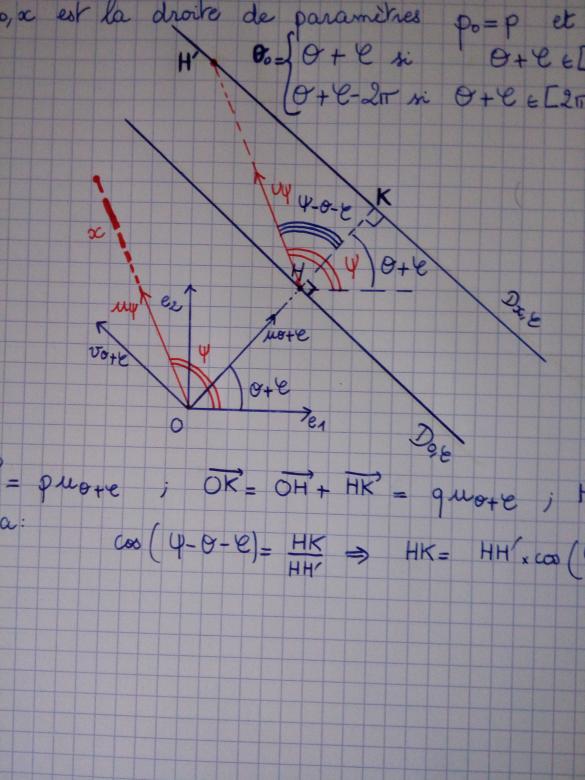 0,x est la droite de paramètres p₀ = p et
θ₀ = { θ + φ si θ + φ ∈ [
θ + φ - 2π si θ + φ ∈ [2π
H'
K
uψ
ψ-θ-φ
x
H
ψ
θ+φ
Dx,φ
uψ
e2
vθ+φ
ψ
uθ+φ
θ+φ
O
e1
D0,φ
= p uθ+φ ; OK = OH + HK = q uθ+φ ;
a:
cos(ψ-θ-φ) = HK/HH' ⇒ HK = HH' × cos(